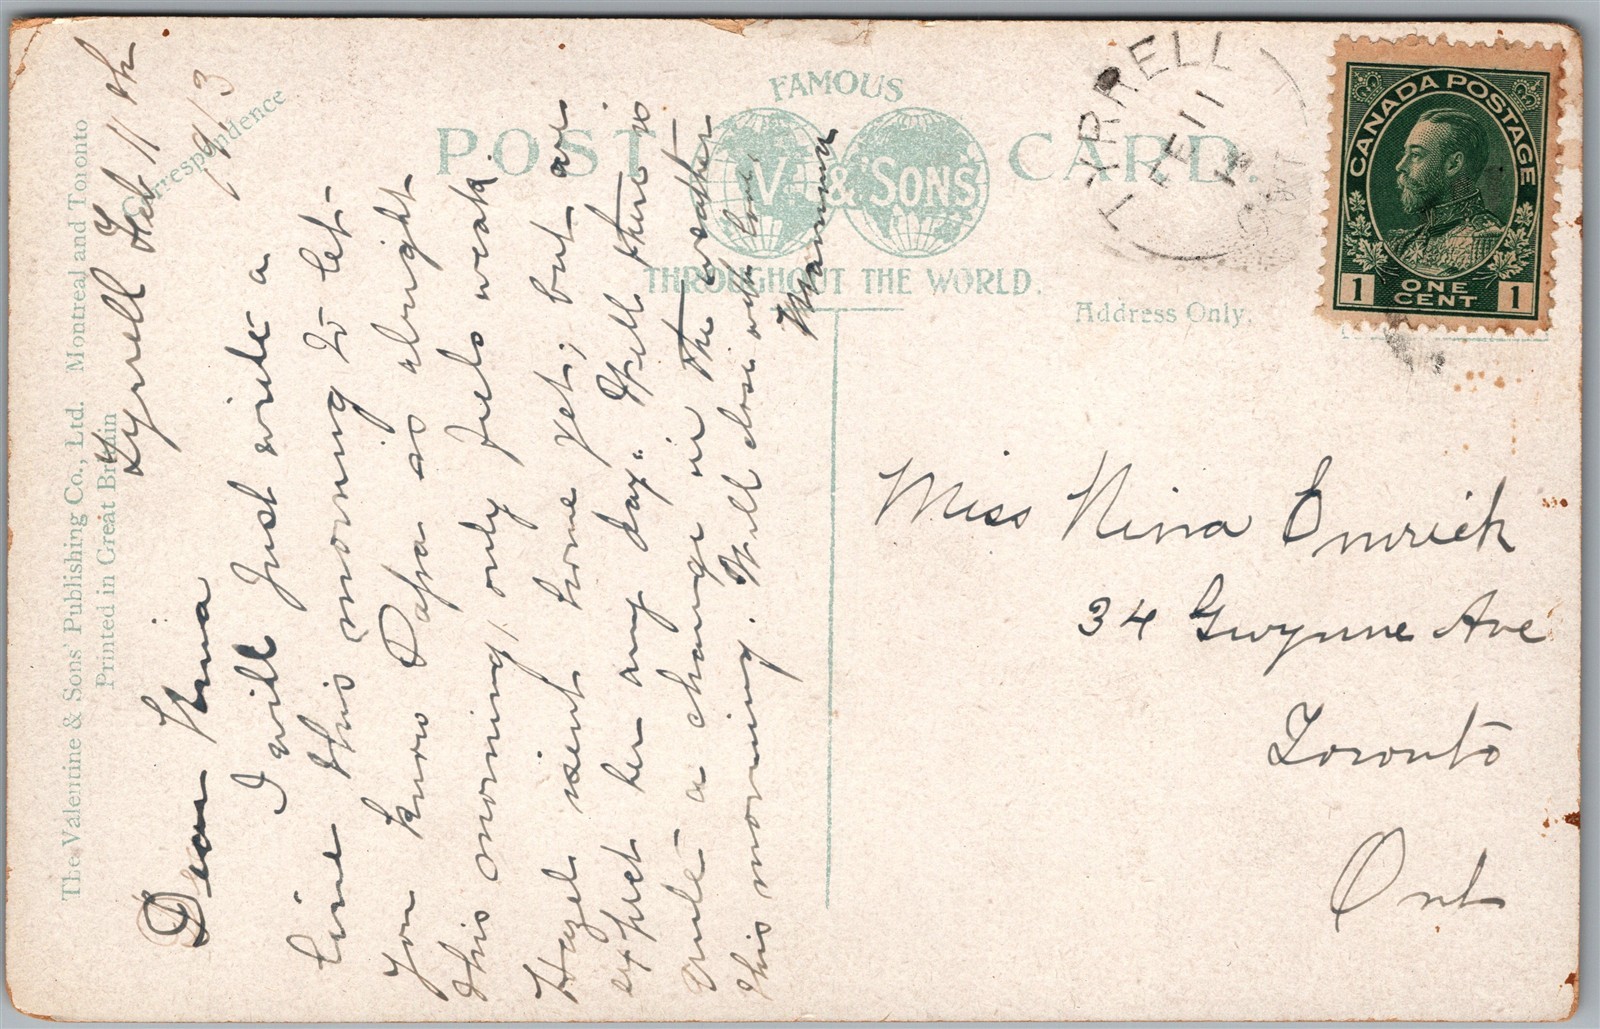 The Valentine & Sons' Publishing Co., Ltd. Montreal and Toronto
Printed in Great Britain
Correspondence
FAMOUS
POST CARD.
V. & SONS
THROUGHOUT THE WORLD.
Address Only.
TYRRELL
FE 11
13
ONT
CANADA POSTAGE
1 ONE CENT 1
Tyrrell Feb 11th
1913
Dear Nina
I will Just write a
line this morning to let
you know Papa is alright
this morning, only feels weak.
Hazel isent home yet; but are
expect her any day. Well there is
quite a change in the weather
this morning. Will close with love,
Mamma
Miss Nina Emrick
34 Gwynne Ave
Toronto
Ont